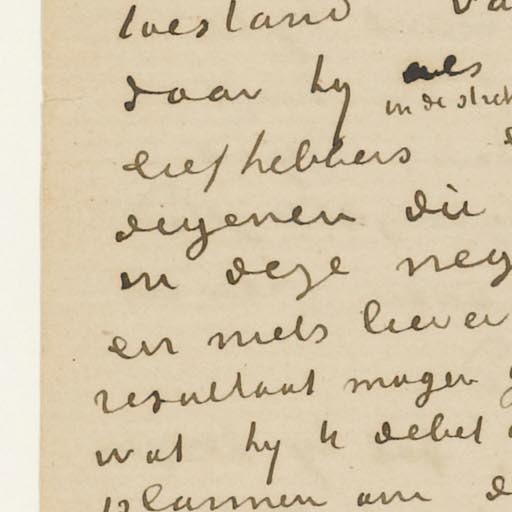 toestand va
daar hy als
in de strek
liefhebbers
degenen die
in deze neg
en niets liever
resultaat mogen g
wat hy U debet
plannen om d